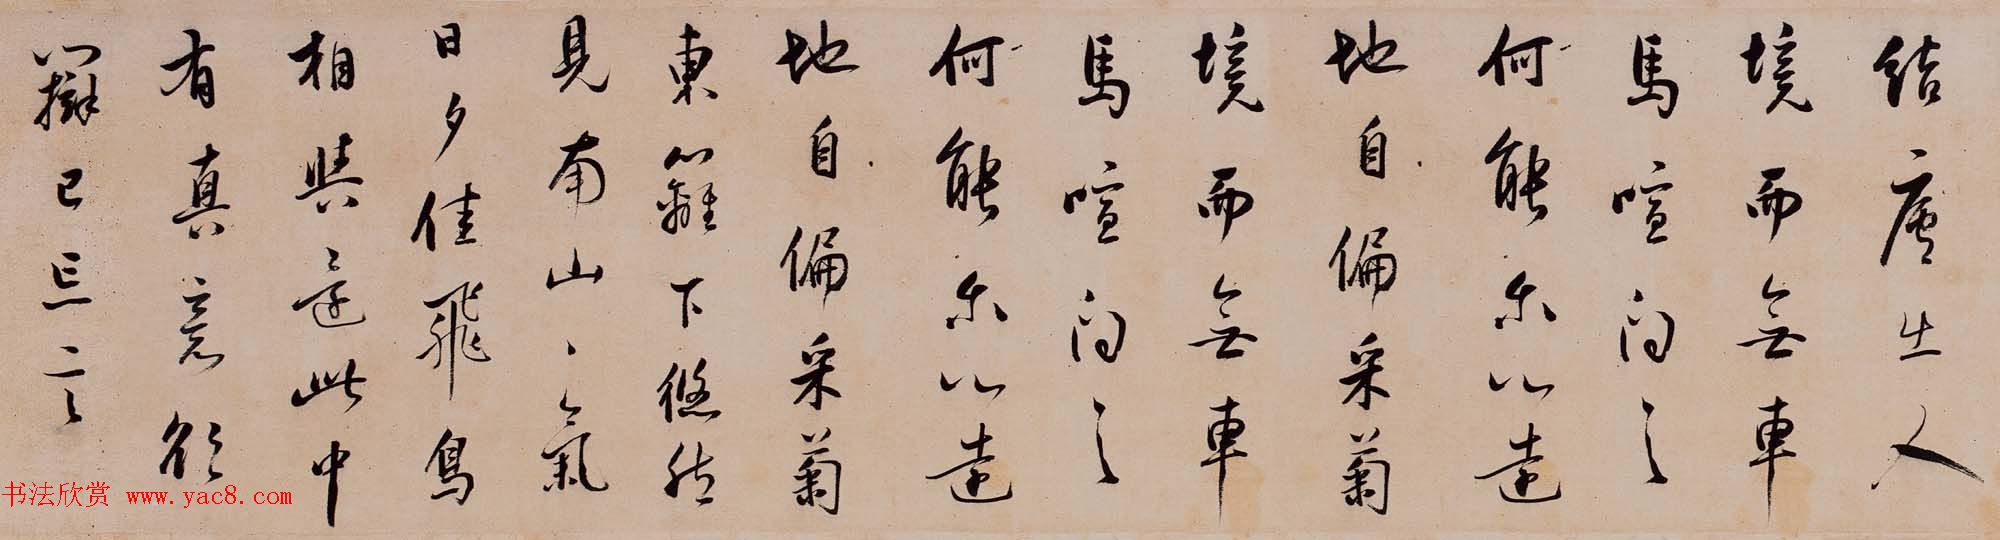 結廬在人
境而無車
馬喧问君
何能尔心遠
地自偏采菊
境而無車
馬喧问君
何能尔心遠
地自偏采菊
東籬下悠然
見南山、氣
日夕佳飛鳥
相與還此中
有真意欲
辯已忘言
书法欣赏 www.yac8.com